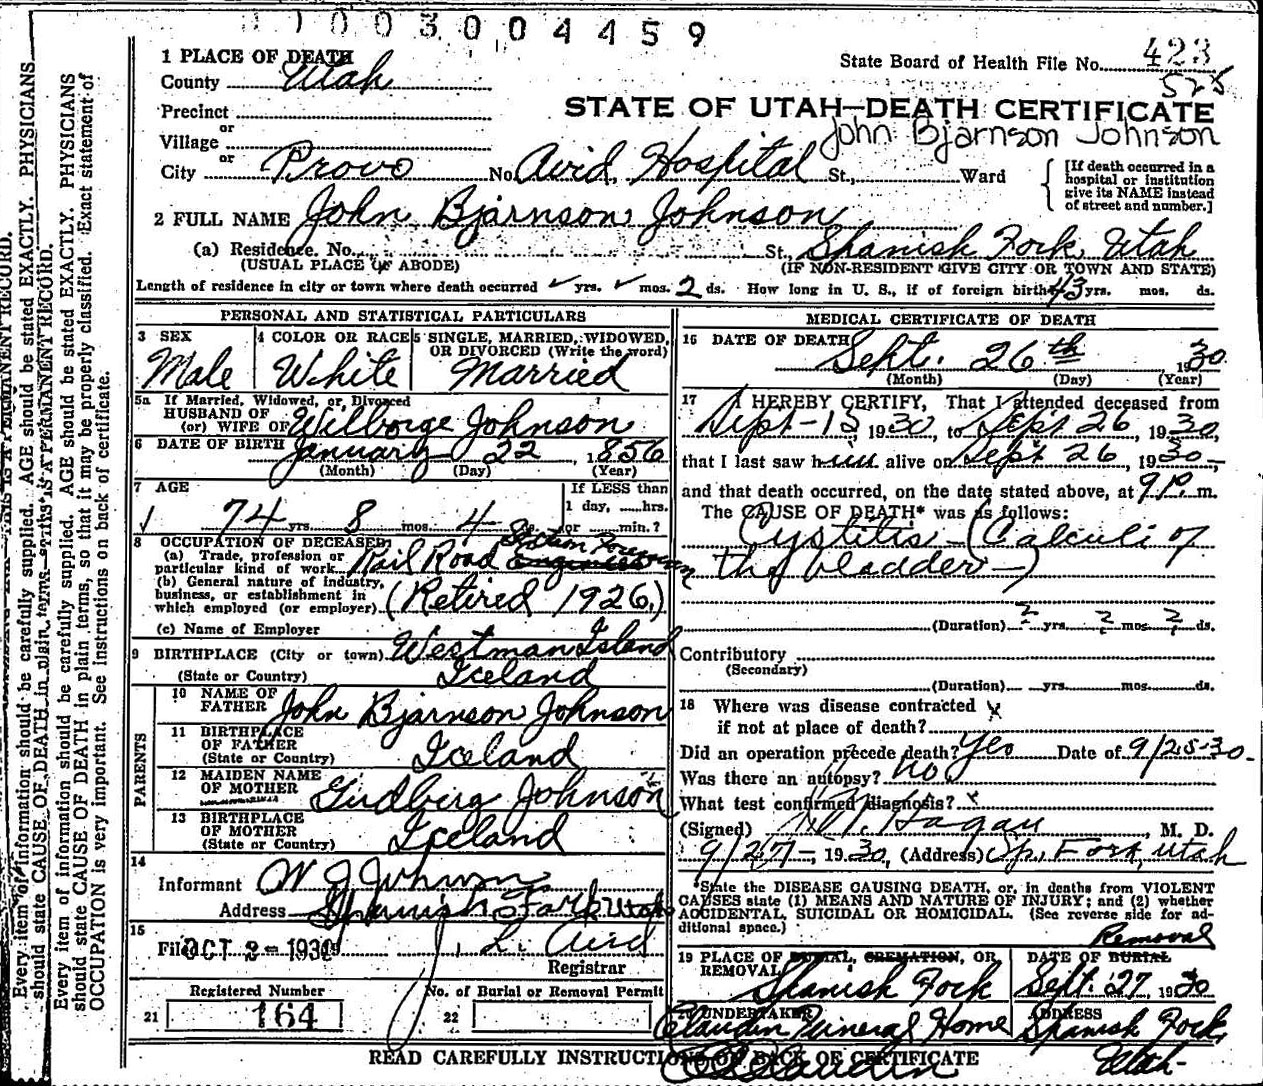 1003004459
1 PLACE OF DEATH
County Utah
State Board of Health File No. 423
525
Precinct
or
Village
or
City Provo No. Aird, Hospital St., Ward
STATE OF UTAH—DEATH CERTIFICATE
John Bjarnson Johnson
[If death occurred in a
hospital or institution
give its NAME instead
of street and number.]
2 FULL NAME John Bjarnson Johnson
(a) Residence. No. St., Spanish Fork, Utah
(USUAL PLACE OF ABODE) (IF NON-RESIDENT GIVE CITY OR TOWN AND STATE)
Length of residence in city or town where death occurred ✓ yrs. ✓ mos. 2 ds. How long in U. S., if of foreign birth 43 yrs. mos. ds.
PERSONAL AND STATISTICAL PARTICULARS
3 SEX
Male
4 COLOR OR RACE
White
5 SINGLE, MARRIED, WIDOWED,
OR DIVORCED (Write the word)
Married
5a If Married, Widowed, or Divorced
HUSBAND OF
(or) WIFE OF Wilborge Johnson
6 DATE OF BIRTH January 22, 1856
(Month) (Day) (Year)
7 AGE
74 yrs. 8 mos. 4 ds.
If LESS than
1 day, ......hrs.
or ......min.?
8 OCCUPATION OF DECEASED
(a) Trade, profession or
particular kind of work Rail Road Section Foreman
(b) General nature of industry,
business, or establishment in
which employed (or employer) (Retired 1926.)
(c) Name of Employer
9 BIRTHPLACE (City or town) Westman Island
(State or Country) Iceland
PARENTS
10 NAME OF
FATHER John Bjarnson Johnson
11 BIRTHPLACE
OF FATHER
(State or Country) Iceland
12 MAIDEN NAME
OF MOTHER Gudberg Johnson
13 BIRTHPLACE
OF MOTHER
(State or Country) Iceland
14
Informant W J Johnson
Address Spanish Fork Utah
15
Filed OCT 2 - 1930 J. L. Aird
Registrar
Registered Number
21 164
No. of Burial or Removal Permit
22
MEDICAL CERTIFICATE OF DEATH
16 DATE OF DEATH
Sept. 26th, 1930
(Month) (Day) (Year)
17 I HEREBY CERTIFY, That I attended deceased from
Sept-15, 1930, to Sept 26, 1930,
that I last saw him alive on Sept 26, 1930-,
and that death occurred, on the date stated above, at 9 P. m.
The CAUSE OF DEATH* was as follows:
Cystitis - (Calculi of
the bladder -)
(Duration) ? yrs. ? mos. ? ds.
Contributory
(Secondary)
(Duration) yrs. mos. ds.
18 Where was disease contracted
if not at place of death?
Did an operation precede death? Yes Date of 9/25-30-
Was there an autopsy? no
What test confirmed diagnosis? x
(Signed) Hagan, M. D.
9/27-, 1930, (Address) Sp., Fork, Utah
*State the DISEASE CAUSING DEATH, or, in deaths from VIOLENT
CAUSES state (1) MEANS AND NATURE OF INJURY; and (2) whether
ACCIDENTAL, SUICIDAL OR HOMICIDAL. (See reverse side for ad-
ditional space.)
Removal
19 PLACE OF BURIAL, CREMATION, OR
REMOVAL
Spanish Fork
DATE OF BURIAL
Sept. 27, 1930
20 UNDERTAKER
Claudin Funeral Home
ADDRESS
Spanish Fork,
Utah-
READ CAREFULLY INSTRUCTIONS ON BACK OF CERTIFICATE
THIS IS A PERMANENT RECORD.
Every item of information should be carefully supplied. AGE should be stated EXACTLY. PHYSICIANS
should state CAUSE OF DEATH in plain terms
THIS IS A PERMANENT RECORD.
Every item of information should be carefully supplied. AGE should be stated EXACTLY. PHYSICIANS
should state CAUSE OF DEATH in plain terms, so that it may be properly classified. Exact statement of
OCCUPATION is very important. See instructions on back of certificate.